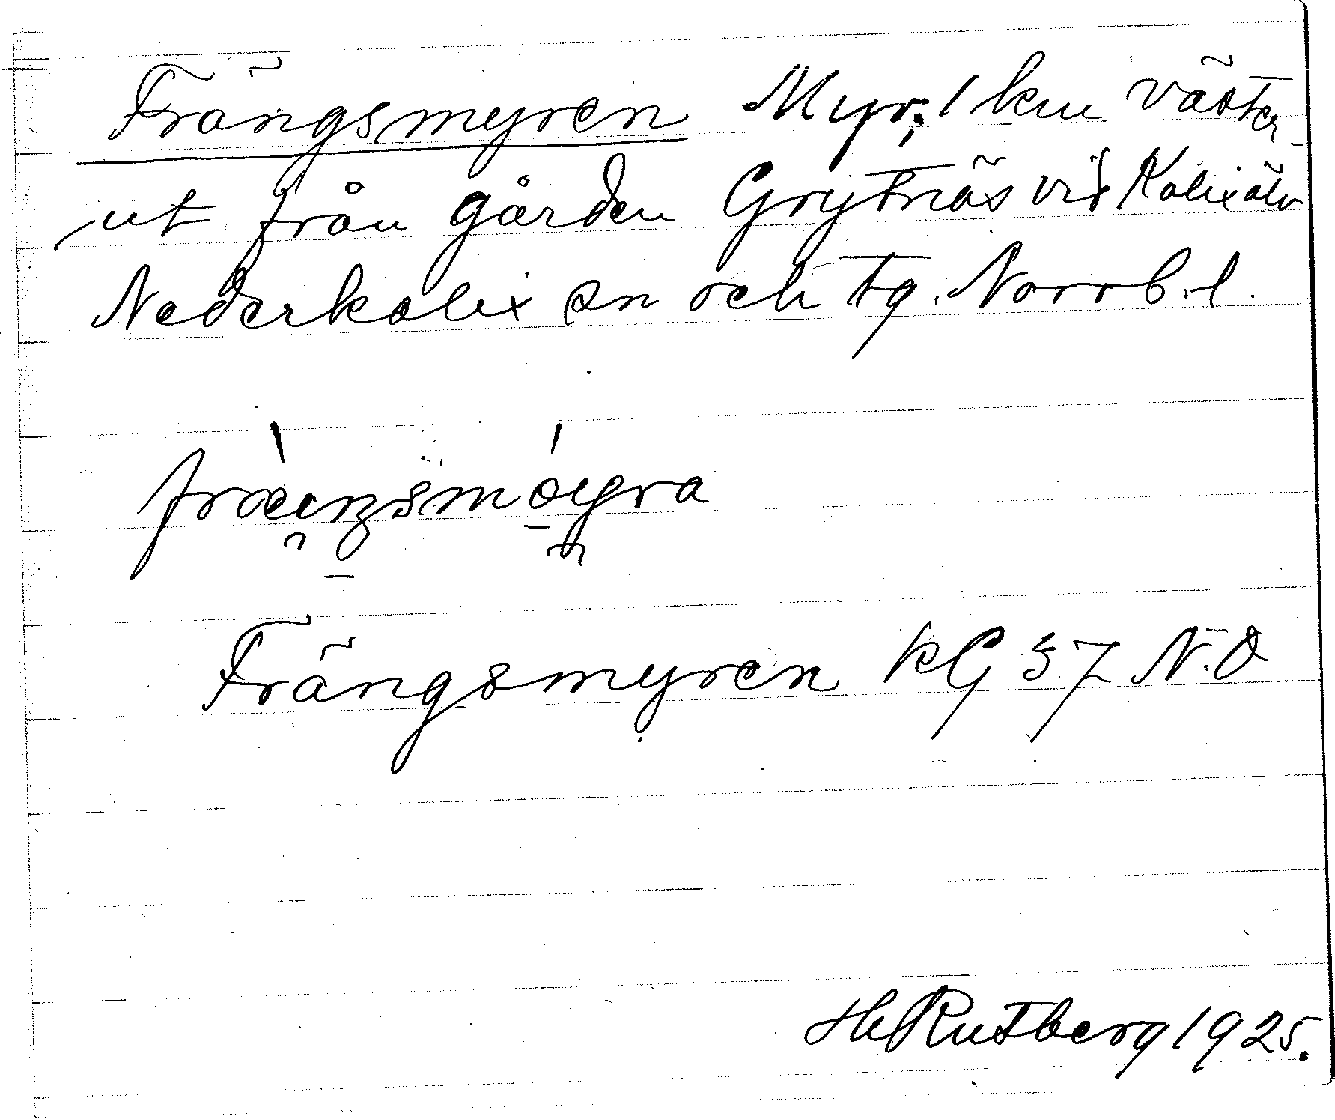 Frängsmyren Myr, 1 km väster-
ut från gården Grytnäs vid Kalixälv
Nederkalix sn och tg. Norrb. l.
Frängsmyren kG 37 N.O
H Rutberg 1925.